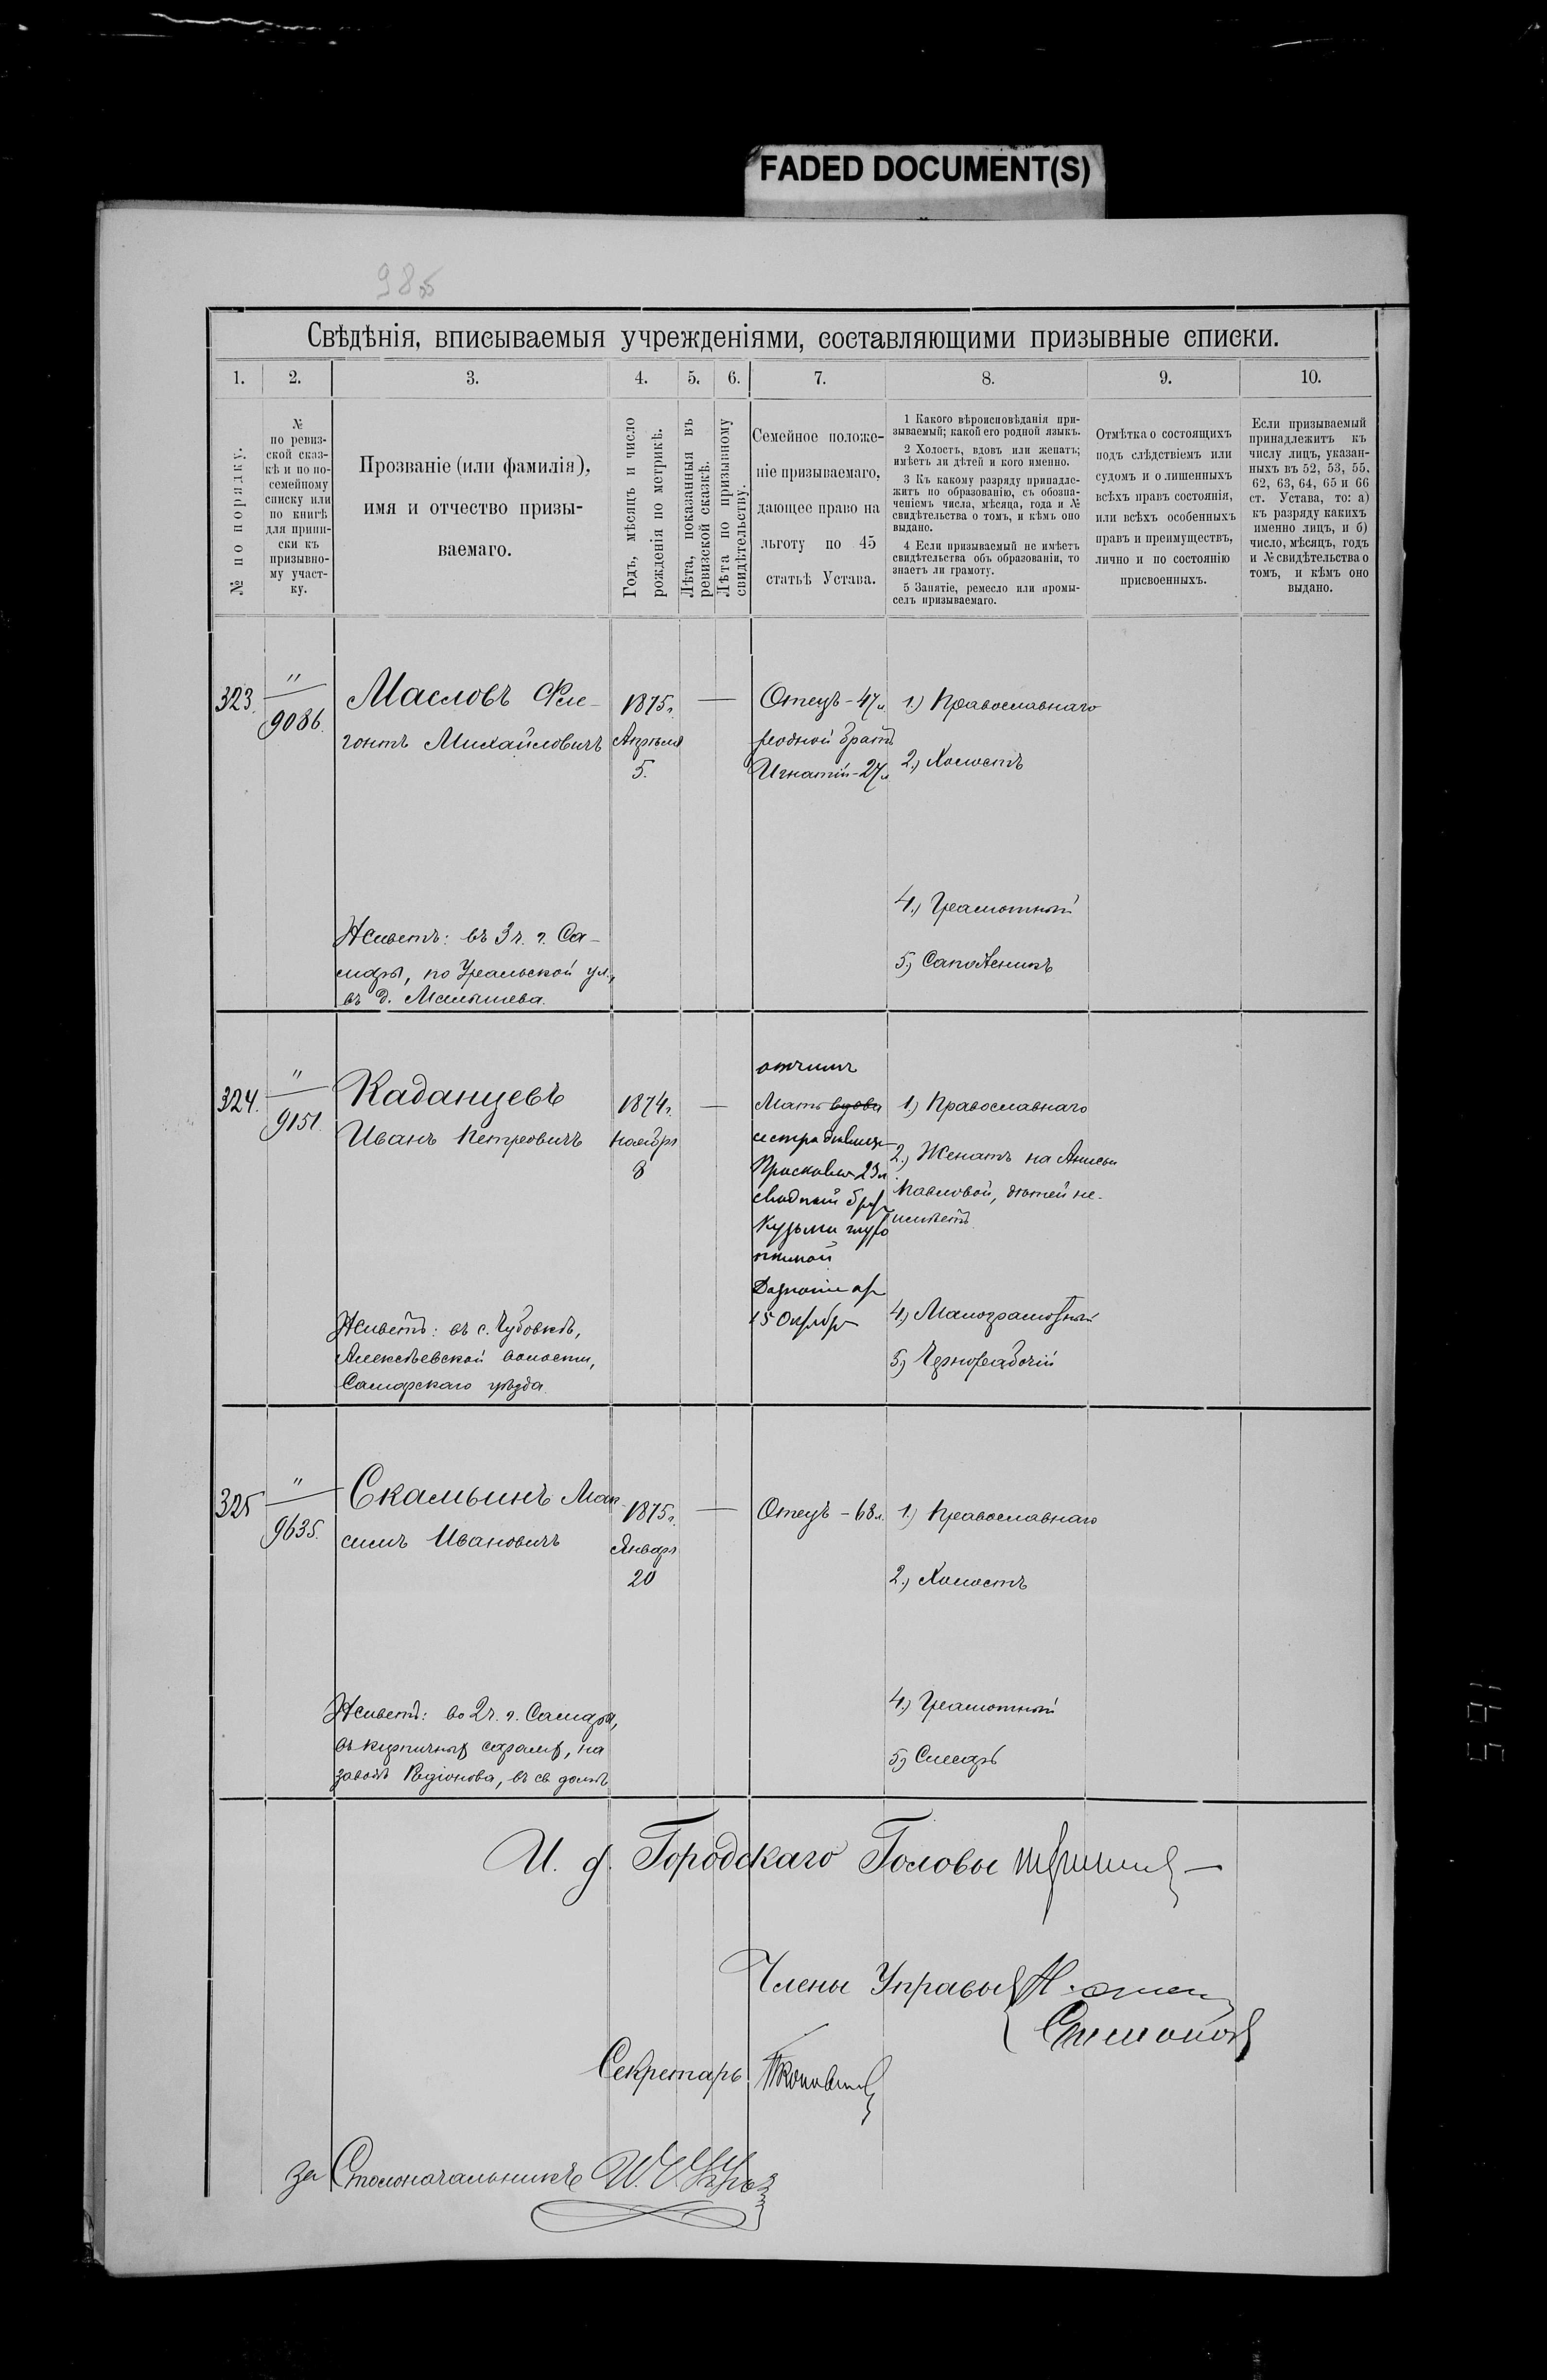 FADED DOCUMENT(S)
98
Свѣдѣнія, вписываемыя учрежденіями, составляющими призывные списки.
1. 2. 3. 4. 5. 6. 7. 8. 9. 10.
№ по порядку.
№
по ревиз-
ской сказ-
кѣ и по по-
семейному
списку или
по книгѣ
для припи-
ски къ
призывно-
му участ-
ку.
Прозваніе (или фамилія),
имя и отчество призы-
ваемаго.
Годъ, мѣсяцъ и число
рожденія по метрикѣ.
Лѣта, показанныя въ
ревизской сказкѣ.
Лѣта по призывному
свидѣтельству.
Семейное положе-
ніе призываемаго,
дающее право на
льготу по 45
статьѣ Устава.
1 Какого вѣроисповѣданія при-
зываемый; какой его родной языкъ.
2 Холостъ, вдовъ или женатъ;
имѣетъ ли дѣтей и кого именно.
3 Къ какому разряду принадле-
житъ по образованію, съ обозна-
ченіемъ числа, мѣсяца, года и №
свидѣтельства о томъ, и кѣмъ оно
выдано.
4 Если призываемый не имѣетъ
свидѣтельства объ образованіи, то
знаетъ ли грамоту.
5 Занятіе, ремесло или промы-
селъ призываемаго.
Отмѣтка о состоящихъ
подъ слѣдствіемъ или
судомъ и о лишенныхъ
всѣхъ правъ состоянія,
или всѣхъ особенныхъ
правъ и преимуществъ,
лично и по состоянію
присвоенныхъ.
Если призываемый
принадлежитъ къ
числу лицъ, указан-
ныхъ въ 52, 53, 55,
62, 63, 64, 65 и 66
ст. Устава, то: а)
къ разряду какихъ
именно лицъ, и б)
число, мѣсяцъ, годъ
и № свидѣтельства о
томъ, и кѣмъ оно
выдано.
323.
"
9086.
Масловъ Фле-
гонтъ Михайловичъ
1875г.
Апрѣля
5.
—
Отецъ - 47л.
родной братъ
Игнатій - 27л
1.) Православнаго
2.) Холостъ
4.) Грамотный
5.) Сапожникъ
Живетъ: въ 3 ч. г. Са-
мары, по Уральской ул.,
въ д. Малышева.
324.
"
9151.
Каданцевъ
Иванъ Петровичъ
1874г.
Ноября
8
—
отчимъ
Мать вдова
сестра
Прасковья 23л
сводный
Кузьма
15
1.) Православнаго
2.) Женатъ на Анисьи
Павловой, дѣтей не-
имѣетъ.
4.) Малограмотный
5.) Чернорабочій
Живетъ: въ с. Чубовкѣ,
Алексѣевской волости,
Самарскаго уѣзда.
325
"
9635.
Скамьинъ Мак-
симъ Ивановичъ
1875г.
Января
20
—
Отецъ - 68л.
1.) Православнаго
2.) Холостъ
4.) Грамотный
5.) Слесарь
Живетъ: во 2 ч. г. Самары,
въ кирпичныхъ сараяхъ, на
заводѣ Родіонова, въ св домѣ
И. д. Городскаго Головы
Члены Управы
Симонов
Секретарь
за Столоначальника
591